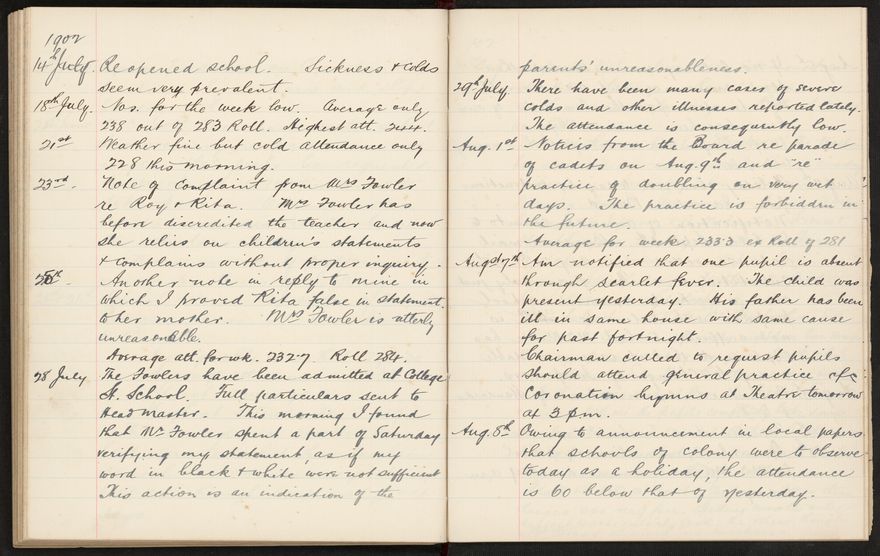 1902
14th July. Reopened school. Sickness & colds
seem very prevalent.
18th July. Nos. for the week low. Average only
238 out of 283 Roll. Highest att. 244.
21st Weather fine but cold attendance only
228 this morning.
23rd. Note of complaint from Mrs Fowler
re Roy & Rita. Mrs Fowler has
before discredited the teacher and now
she relies on children's statements
& complains without proper inquiry.
25th. Another note in reply to mine in
which I proved Rita false in statement
to her mother. Mrs Fowler is utterly
unreasonable.
Average att. for wk. 232.7 Roll 284.
28 July The Fowlers have been admitted at College
St. School. Full particulars sent to
Head Master. This morning I found
that Mr Fowler spent a part of Saturday
verifying my statement, as if my
word in black & white were not sufficient
This action is an indication of the
parents' unreasonableness.
29th July. There have been many cases of severe
colds and other illnesses reported lately.
The attendance is consequently low.
Aug. 1st Notices from the Board re parade
of cadets on Aug. 9th and "re"
practice of doubling on very wet
days. The practice is forbidden in
the future.
Average for week 233.3 ex Roll of 281
Augst 7th Am notified that one pupil is absent
through scarlet fever. The child was
present yesterday. His father has been
ill in same house with same cause
for past fortnight.
Chairman called to request pupils
should attend general practice of
Coronation hymns at Theatre tomorrow
at 3 pm.
Aug. 8th Owing to announcement in local papers
that schools of colony were to observe
today as a holiday, the attendance
is 60 below that of yesterday.